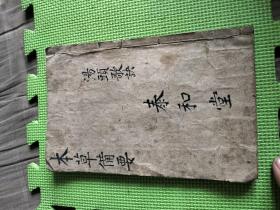 湯頭歌訣
泰和堂
本草備要